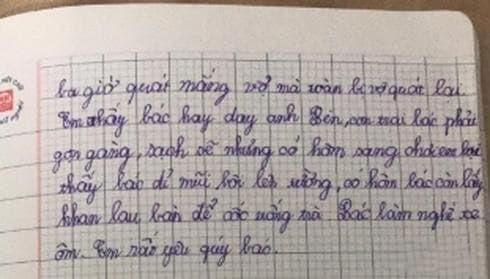 ba giờ quát mắng vợ mà toàn bị vợ quát lại.
Em thấy bác hay dạy anh Bền, con trai bác phải
gọn gàng, sạch sẽ nhưng có hôm sang chơi em lại
thấy bác dí mũi hôi lên tường, có hôm bác còn lấy
khăn lau bàn để cốc uống trà. Bác làm nghề xe
ôm. Em rất yêu quý bác.